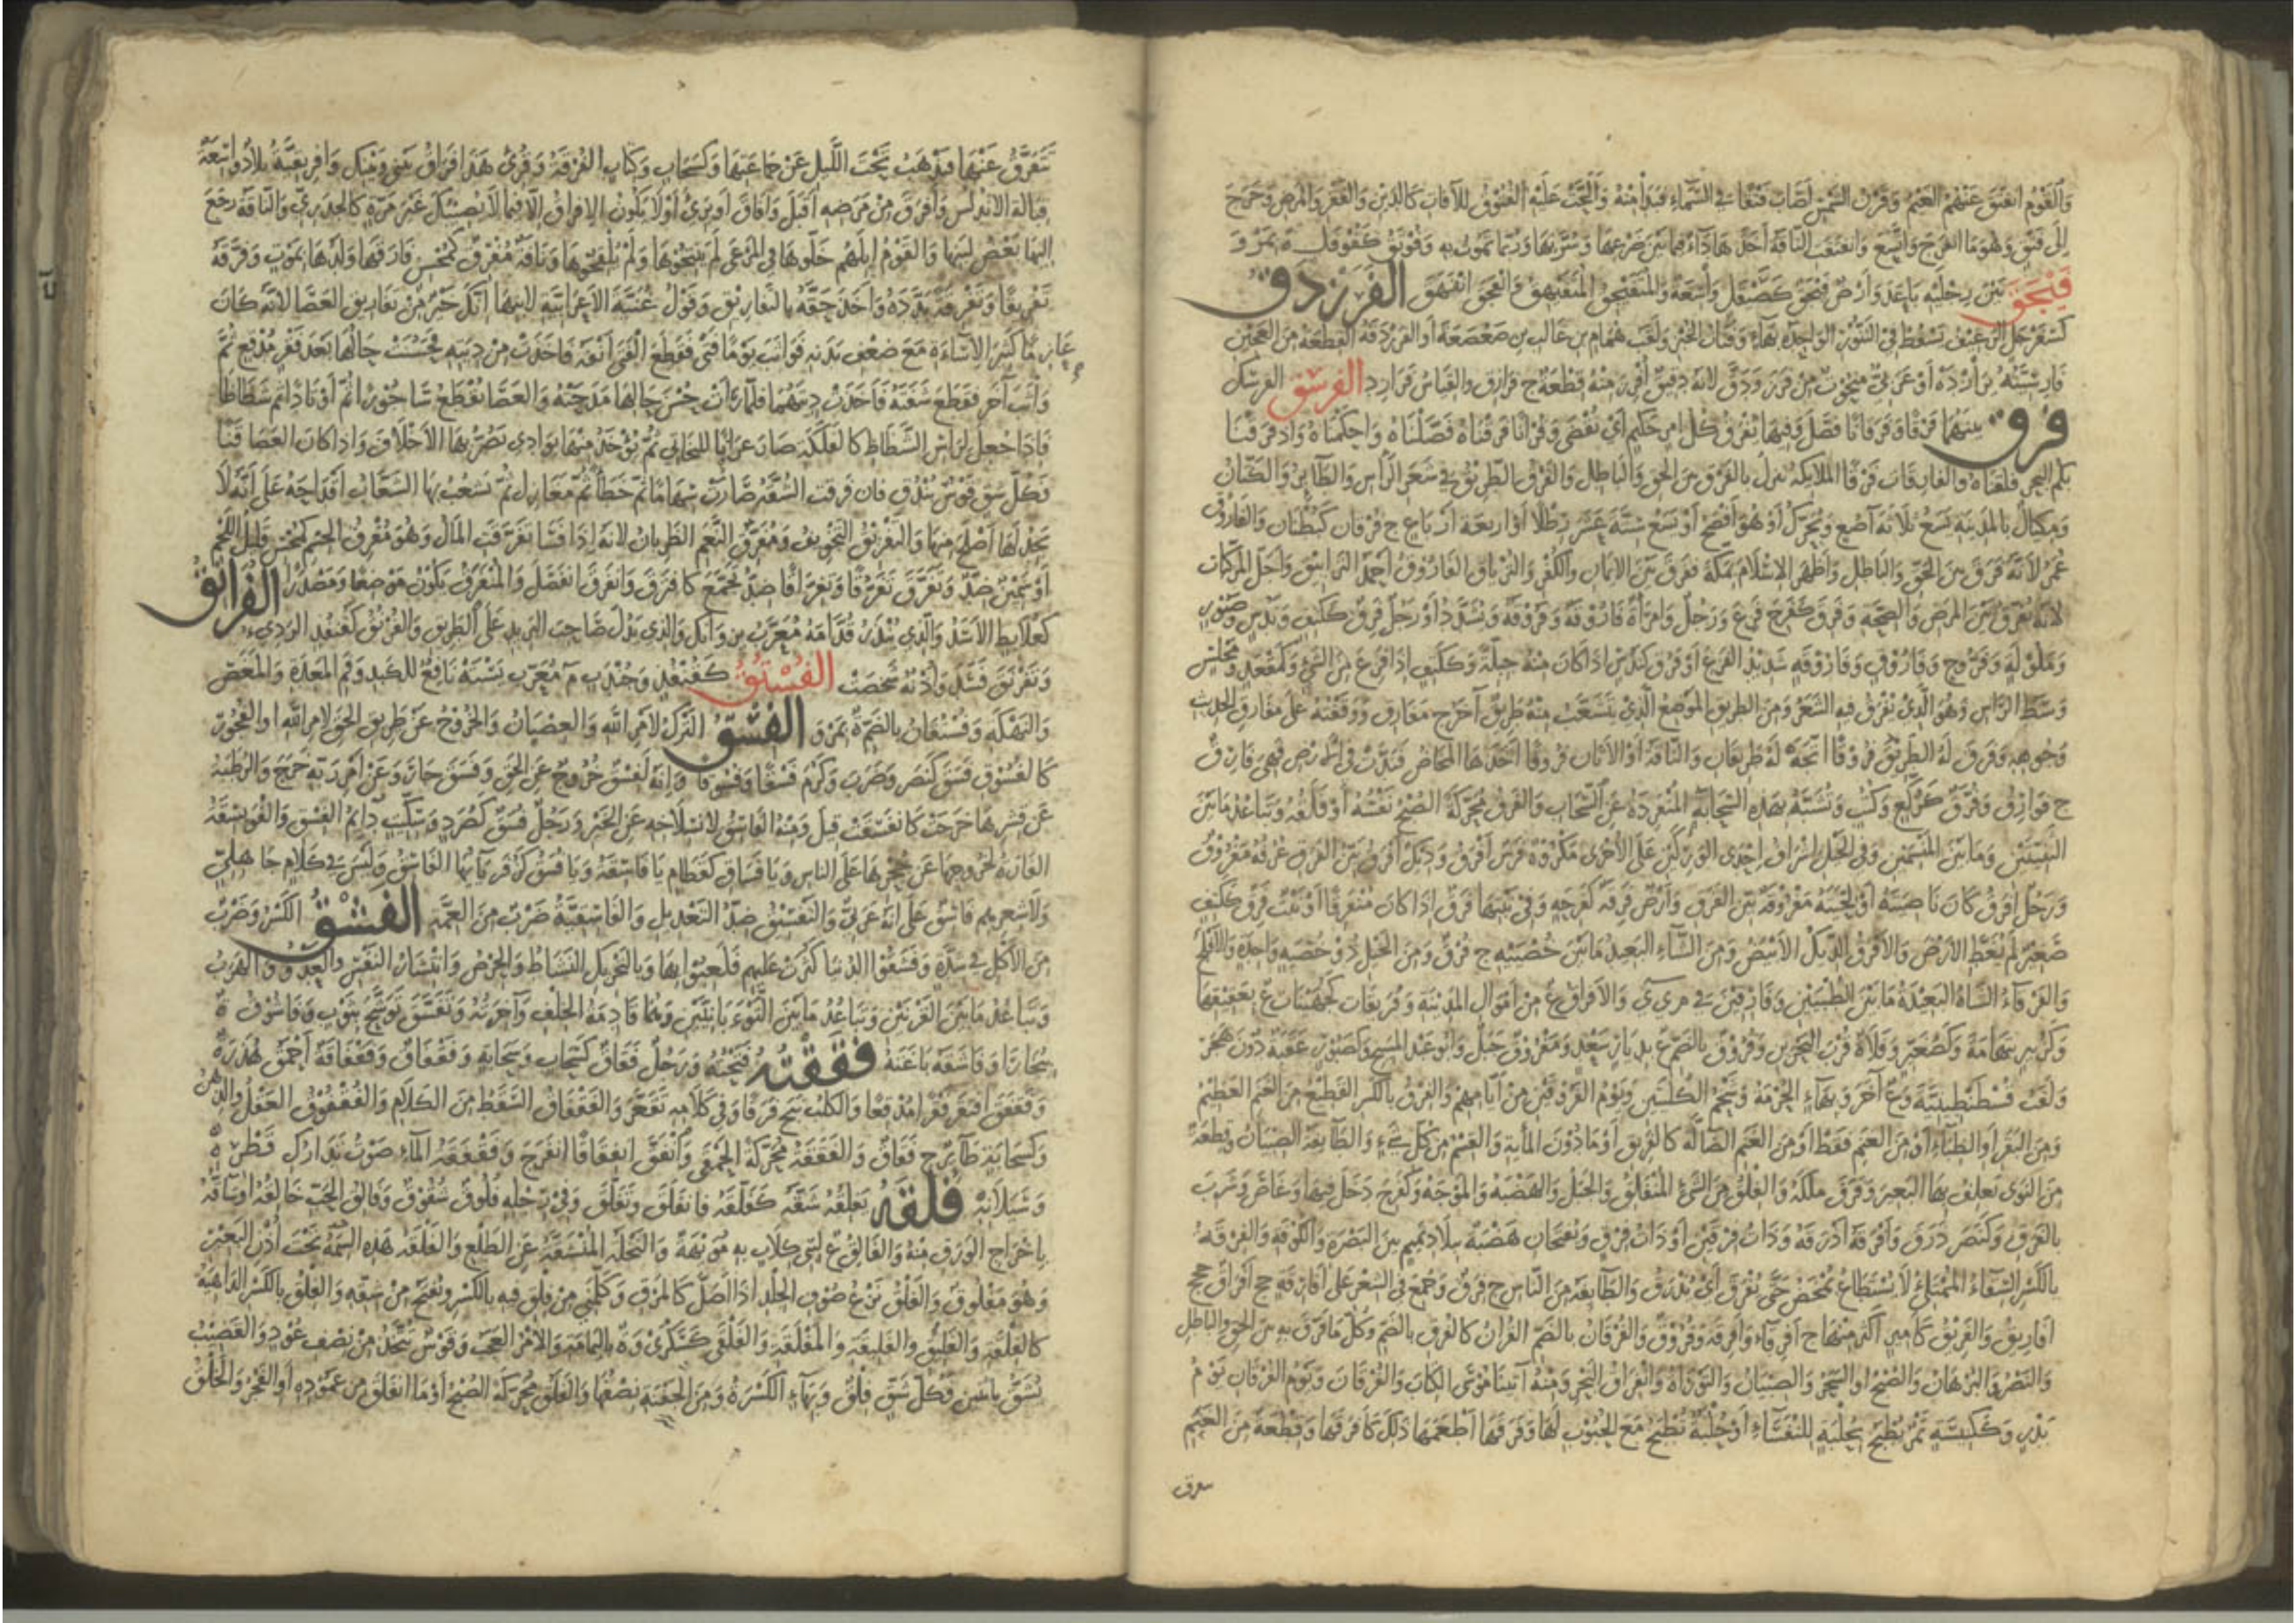 والقوم انفتق عنهم الغيم وقرن الشمس اصاب فتقا في السماء فبدا منه والجت عليه الفتوق للآفات كالدين والفقر والمرض وخرج
الى فتق وهو ما انفرج واتسع وانفتقت الناقة اخذها داء فيما بين ضرعها وسرتها وربما تموت به وفوتق كفوفل ة بمرو
فنجق بين رجليه باعد وارض كصيقل واسعة والمتفيحق المتفيهق وانفحق انفهق الفرزدق
كسفرجل الرغيف يسقط في التنور الواحدة بهاء وفتات الخبز ولقب همام بن غالب بن صعصعة او الفرزدقة القطعة من العجين
فارسيته برازده او عربي منحوت من فرز ودق لانه دقيق افرز منه قطعة ج فرازق والقياس فرازد الفرشق الفرسك
فرق بينهما فرقا وفرقانا فصل وفيها يفرق كل امر حكيم اي يقضى وقرانا فرقناه فصلناه واحكمناه واذ فرقنا
بكم البحر فلقناه والفارقات فرقا الملائكة تنزل بالفرق بين الحق والباطل والفرق الطريق في شعر الراس والطائر والكتان
ومكيال بالمدينة يسع ثلاثة آصع ويحرك او هو افصح او يسع ستة عشر رطلا او اربعة ارباع ج فرقان كبطنان والفاروق
عمر لانه فرق بين الحق والباطل واظهر الاسلام بمكة ففرق بين الايمان والكفر والترياق الفاروق احمد الترايق واجل المركبات
لانه يفرق بين المرض والصحة وفرق كفرح فزع ورجل وامراة فاروقة وفروقة وتشدد او رجل فرق ككتف وندس وصبور
وملولة وفروج وفاروق وفاروقة شديد الفزع او فرق كندس اذا كان منه جبلة وككتف اذا فزع من الشيء وكمقعد ومجلس
وسط الراس وهو الذي يفرق فيه الشعر ومن الطريق الموضع الذي يتشعب منه طريق آخر ج مفارق ووقفته على مفارق الحديث
وجوهه وفرق له الطريق فروقا اتجه له طريقان والناقة او الاتان فروقا اخذها المخاض فندت في الارض فهي فارق
ج فوارق وفرق كركع وكتب وتشبه بهذه السحابة المنفردة عن السحاب والفرق محركة الصبح نفسه او فلقه وتباعد ما بين
الثنيتين وما بين المنسمين وفي الخيل اشراف احدى الوركين على الاخرى مكروه فرس افرق وديك افرق بين الفرق عرفه مفروق
ورجل افرق كان ناصيته او لحيته مفروقة بين الفرق وارض فرقة كفرحة وفي نبتها فرق اذا كان متفرقا او نبت فرق ككتف
صغير لم يغط الارض والافرق الديك الابيض ومن الشاء البعيد ما بين خصييه ج فرق ومن الخيل ذو خصية واحدة والافلج
والفرقاء الشاة البعيدة ما بين الطبيين وفارقين في م ي ي والافراق ع من اموال المدينة وفريقات كجهينات ع بعقيقها
وكزبير بتهامة وكصغير وفلاة قرب البحرين وفروق بالضم ع بديار سعد ومفروق جبل وابو عبد المسيح وكصبور عقبة دون هجر
ولقب قسطنطينية وع آخر وبهاء الحرمة وشحم الكليتين ويوم الفروقين من ايامهم والفرق بالكسر القطيع من الغنم العظيم
ومن البقر او الظباء او من الغنم فقط او من الغنم الضالة كالفريق او ما دون المائة والقسم من كل شيء والطائفة الصبيان وقطعة
من النوى تعلف بها البعير وفرق ملكه والفلق من الشيء المنفلق والجبل والهضبة والموجة وكفرح دخل فيها وغاص وشرب
بالفرق وكنصر ذرق وافرقه اذرقه وذات فرقين او ذات فرق وتفتحان هضبة ببلاد تميم بين البصرة والكوفة والفرقة
بالكسر السقاء الممتلئ لا يستطاع يمخض حتى يفرق اي يذرق والطائفة من الناس ج فرق وجمع في الشعر على افارقة جج افراق ججج
افاريق والفريق كامير اكثر منها ج افرقاء وافرقة وفروق والفرقان بالضم القرآن كالفرق بالضم وكل ما فرق به بين الحق والباطل
والنصر والبرهان والصبح او السحر والصبيان والتوراة وانفراق البحر ومنه آتينا موسى الكتاب والفرقان ويوم الفرقان يوم
بدر وككنيسة تمر يطبخ بحلبة للنفساء او حلبة تطبخ مع الحبوب لها وفرقها اطعمها ذلك كافرقها وقطعة من الغنم
تتفرق عنها فتذهب تحت الليل عن جماعتها وكسحاب وكتاب الفرقة وقرئ هذا فراق بيني وبينك وافريقية بلاد واسعة
قبالة الاندلس وافرق من مرضه اقبل وافاق او برئ او لا يكون الافراق الا فيما لا يصيبك غير مرة كالجدري والناقة رجع
اليها بعض لبنها والقوم ابلهم خلوها في المرعى لم ينتجوها ولم يلقحوها وناقة مفرق كمحسن فارقها ولدها بموت وفرقه
تفريقا وتفرقة بدده واخذ حقه بالتفاريق وقول غنية الاعرابية لابنها انك خير من تفاريق العصا لانه كان
عارما كثير الاساءة مع ضعف بدنه فواثب يوما فتى فقطع الفتى انفه فاخذت من ديته فحسنت حالها بعد فقر مدقع ثم
واثب آخر فقطع شفته فاخذت ديتها فلما رات حسن حالها مدحته والعصا تقطع ساجورا ثم اوتادا ثم شظاظا
فاذا جعل لراس الشظاظ كالفلكة صار عرانا للبخاتي ثم يؤخذ منها توادي تصر بها الاخلاف واذا كان العصا قنا
فكل شق قوس بندق فان فرقت الشقة صارت سهاما ثم حظاء ثم مغازل ثم تشعب بها الشعاب اقداحه على انه لا
يجد لها اصلح منها والتفريق التخويف ومفرق النعم الظربان لانه اذا فسا تفرقت المال وهو مفرق الجسم كمحسن قليل اللحم
او سمين ضد وتفرق تفرقا وتفراقا ضد تجمع كافترق وانفرق انفصل والمنفرق يكون موضعا ومصدرا الفرانق
كعلابط الاسد والذي ينذر قدامه معرب بروانك والذي يدل صاحب البريد على الطريق والفرنق كقنفذ الرديء
وتفرنق فسد واذنه شخصت الفستق كقنفذ وجندب م معرب بسته نافع للكبد وفم المعدة والمغص
والنكهة وفستقان بالضم ة بمرو الفسق الترك لامر الله والعصيان والخروج عن طريق الحق لامر الله او الفجور
كالفسوق فسق كنصر وضرب وكرم فسقا وفسوقا وانه لفسق خروج عن الحق وفسق جار وعن امر ربه خرج والرطبة
عن قشرها خرجت كانفسقت قيل ومنه الفاسق لانسلاخه عن الخير ورجل فسق كصرد وسكيت دائم الفسق والفويسقة
الفارة لخروجها عن جحرها على الناس ويا فساق كقطام يا فاسقة ويا فسق كزفر يا ايها الفاسق وليس في كلام جاهلي
ولا شعرهم فاسق على انه عربي والتفسيق ضد التعديل والفاسقية ضرب من العمة الفشق الكسر وضرب
من الاكل في شدة وفشقوا الدنيا كثرت عليهم فلعبوا بها وبالتحريك النشاط والحرص وانتشار النفس والعدو والهرب
وتباعد ما بين القرنين وتباعد ما بين التوءبانيين وهما قادمة الخلف وآخرته وتفشق توشح بثوب وفاشوق ة
ببخارا وفاشقه باغته ففقته فتحته ورجل فقاق كسحاب وسحابة وفقفاق وفقفاقة احمق هذرة
وفقفق افتقر فقرا مدقعا والكلب نبح فرقا وفي كلامه تقعر والفقفاق السقط من الكلام والفقفوق العقل والذهن
وكسحابة طائر ج فقاق والفققة محركة الحمقى وانفق انفقاقا انفرج وفقفقة الماء صوت تدارك قطره
وسيلانه فلقه يفلقه شقه كفلقه فانفلق وتفلق وفي رجليه فلوق شقوق وفالق الحب خالقه او شاقه
باخراج الورق منه والفالق ع لبني كلاب به مويهة والنخلة المنشقة عن الطلع والفلقة هذه السمة تحت اذن البعير
وهو مفلوق والفلق نزع صوف الجلد اذا اصل كالمرق وكلمني من فلق فيه بالكسر ويفتح من شقه والفلق بالكسر الداهية
كالفلقة والفليق والفليقة والمفلقة والفلقى كسكرى وة باليمامة والامر العجب وقوس تتخذ من نصف عود والقضيب
يشق باثنين فكل شق فلق وبهاء الكسرة ومن الجفنة نصفها والفلق محركة الصبح او ما انفلق من عموده او الفجر والخلق